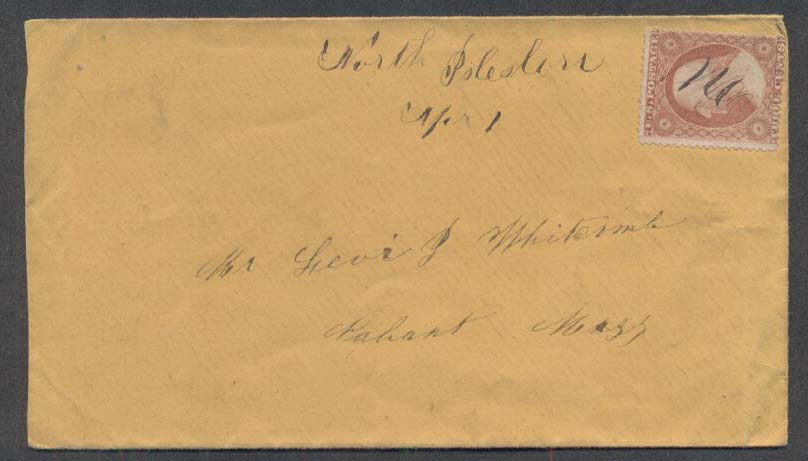 North Isleston
Apr 1
U.S. POSTAGE
THREE CENTS
Mr Levi J Whitcomb
Nahant Mass